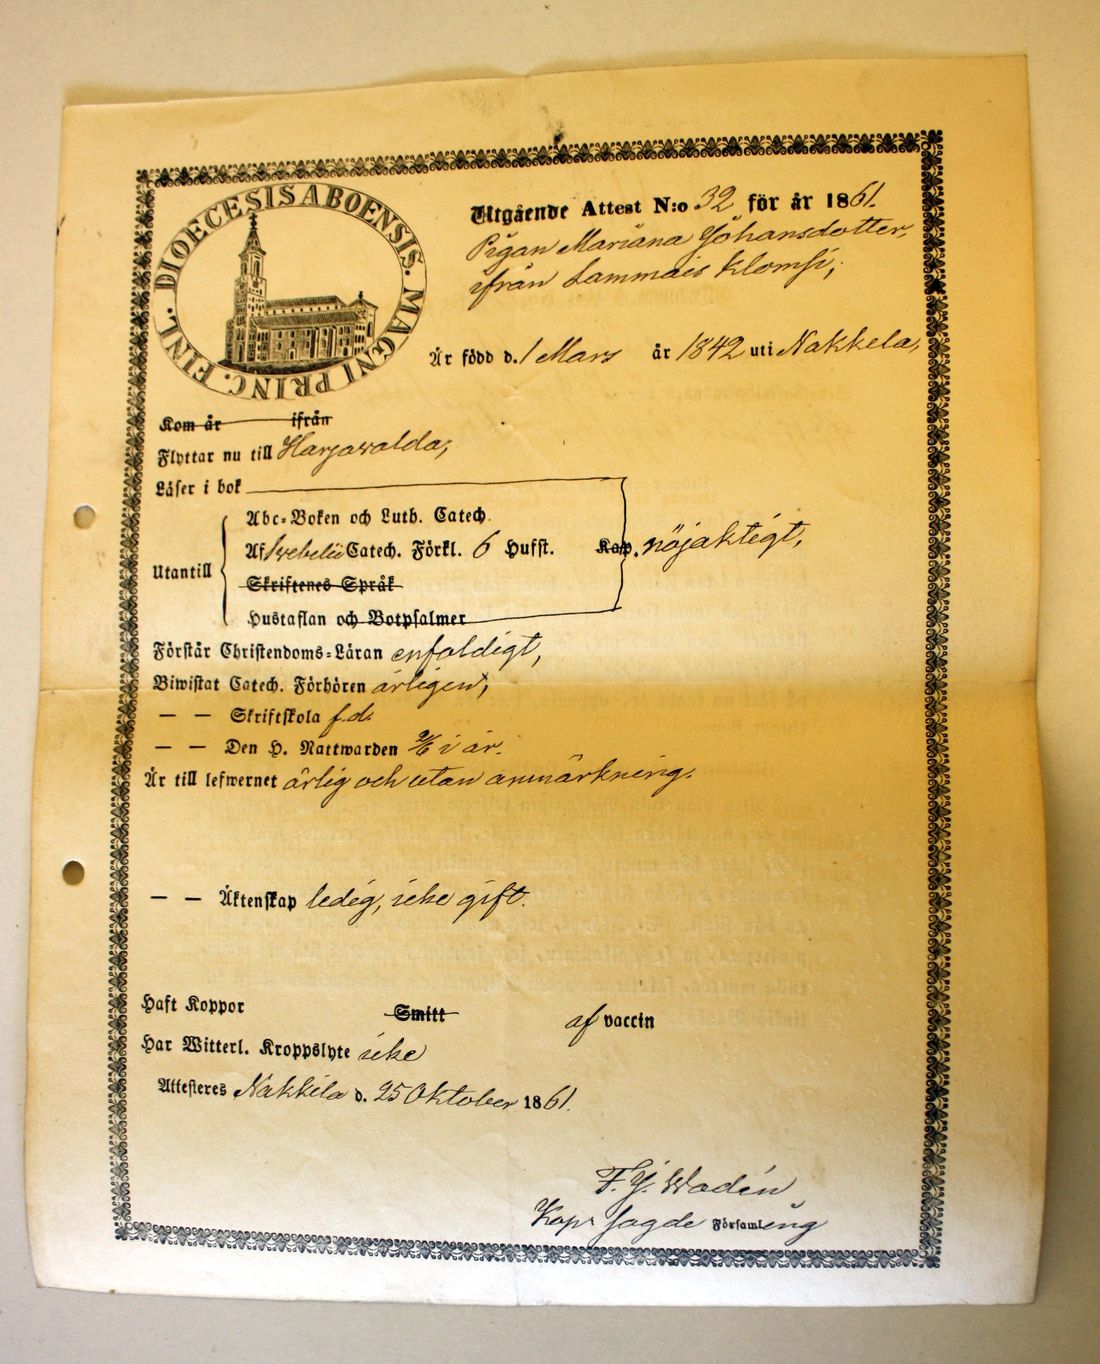 DIOECESIS ABOENSIS. MAGNI PRINC. FINL.
Utgående Attest N:o 32 för år 1861.
Pigan Mariana Johansdotter,
ifrån Lammais Klomsi;
Är född d. 1 Mars år 1842 uti Nakkila,
Kom år ifrån
Flyttar nu till Harjawalda;
Läser i bok
Abc-Boken och Luth. Catech.
Utantill Af Svebelii Catech. Förkl. 6 Hufst. Kap. nöjaktigt,
Skriftenes Språk
Hustaflan och Botpsalmer
Förstår Christendoms-Läran enfaldigt,
Biwistat Catech. Förhören årligen,
— — Skriftskola f.d.
— — Den H. Nattwarden i år.
Är till lefwernet ärlig och utan anmärkning.
— — Äktenskap ledig, icke gift.
Haft Koppor Smitt af vaccin
Har Witterl. Kroppslyte icke
Attesteres Nakkila d. 25 Oktober 1861.
F. J. Wadén
Kapl. sagde Församling